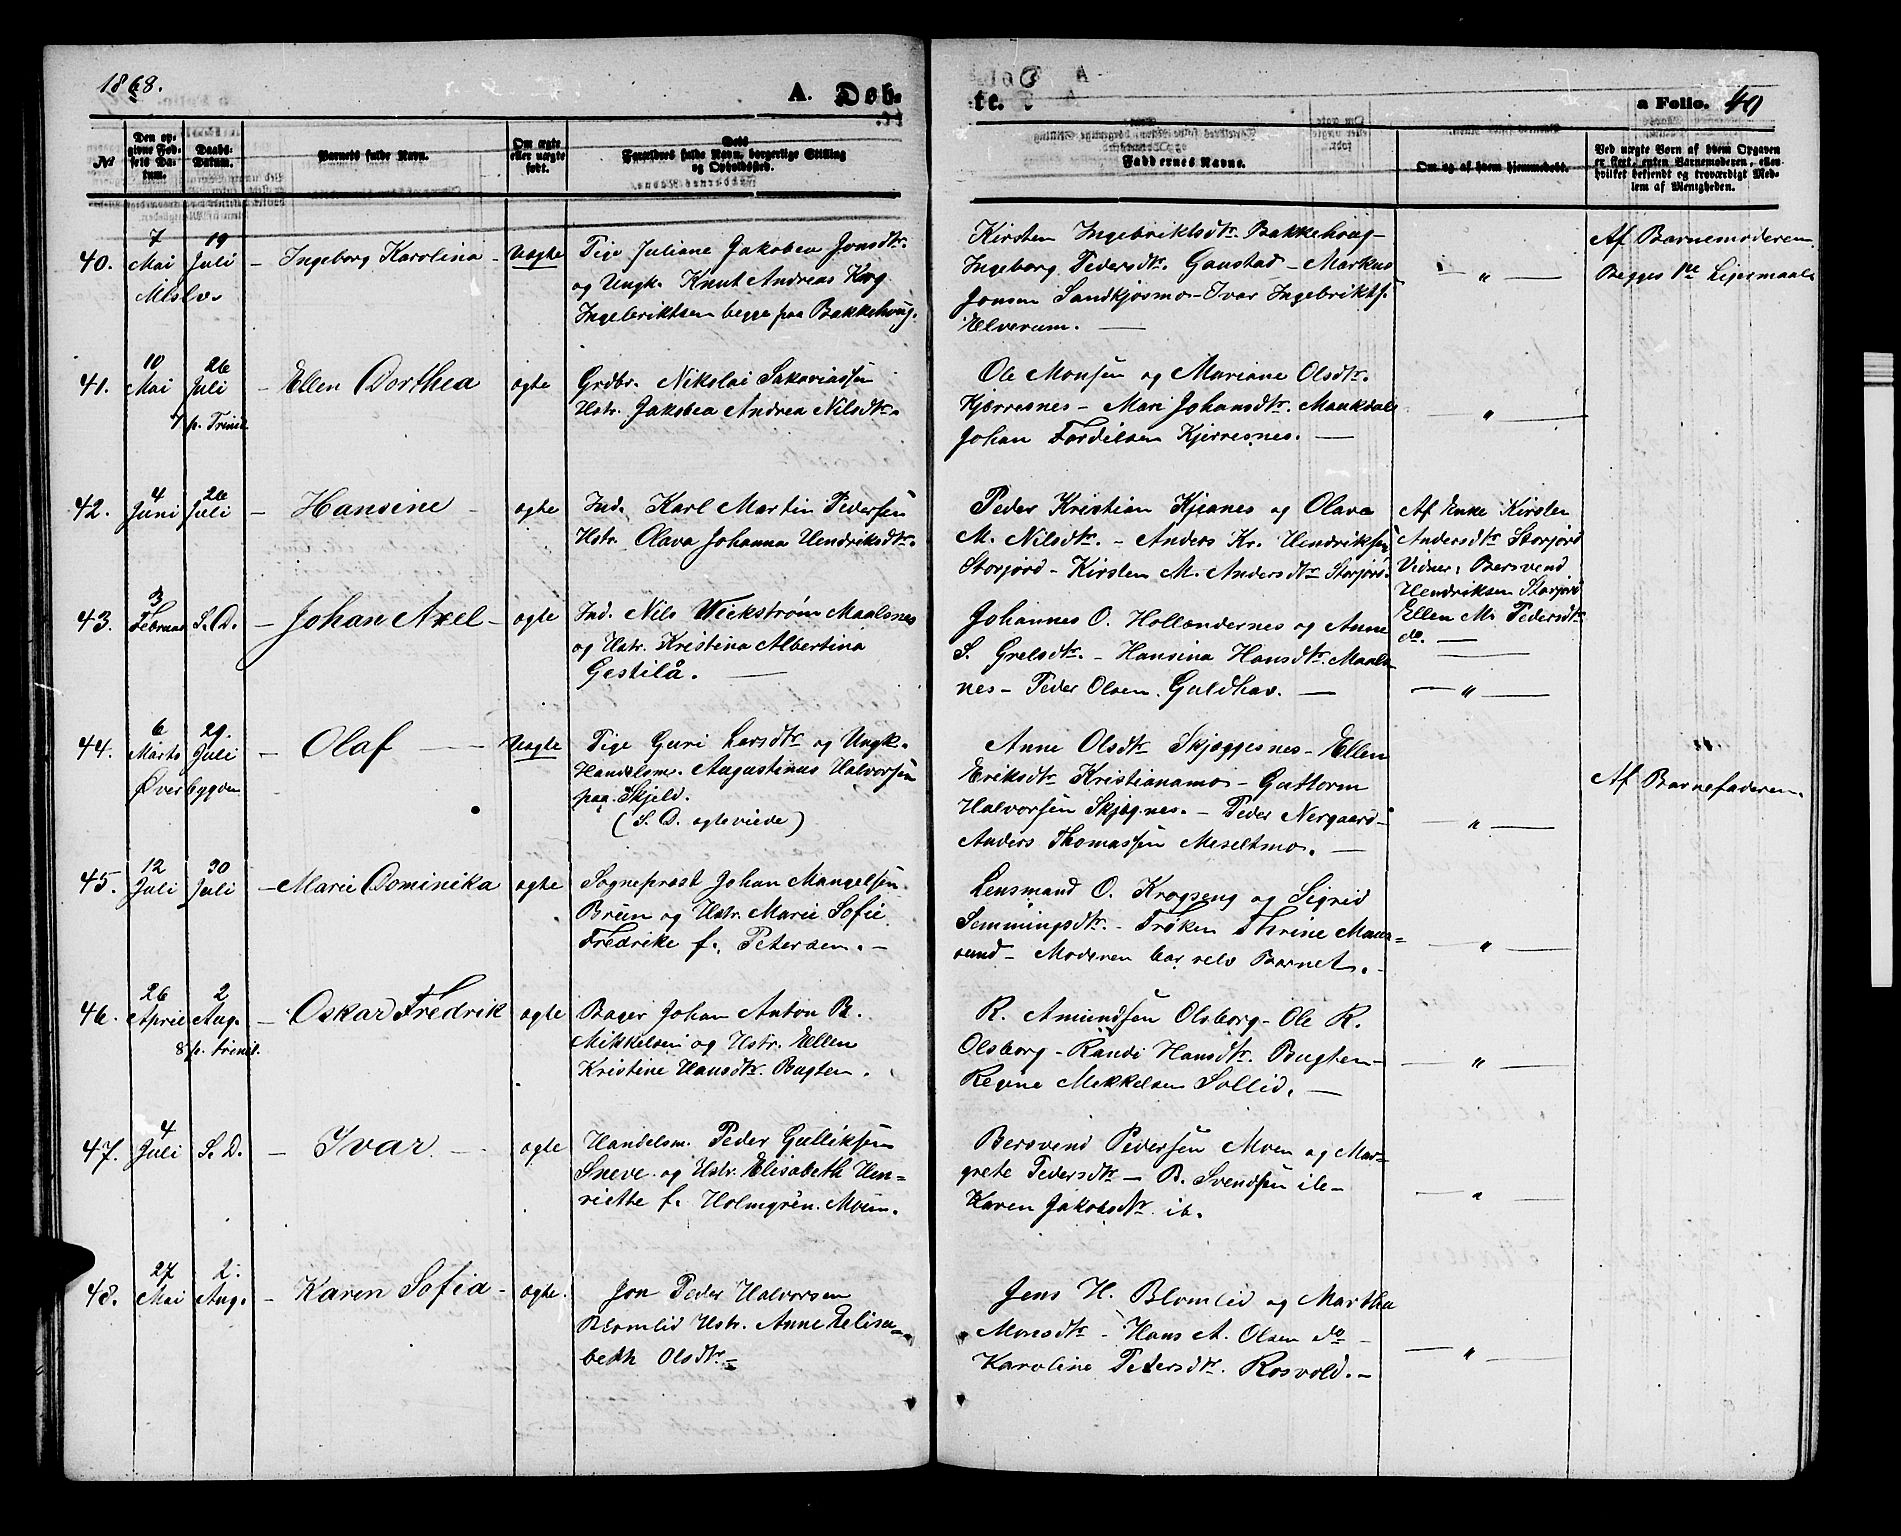 1868.
A. Døb-
te.
a Folio. 40
No
Den opgivne Fødsels Datum.
Daabs-Datum.
Barnets fulde Navn.
Om ægte eller uægte født.
Dets Forældres fulde Navn, borgerlige Stilling og Opholdssted.
Faddernes Navne.
Om og af hvem hjemmedøbt.
Ved uægte Børn af hvem Opgaven er skeet, enten Barnemoderen, eller hvilket bekjendt og troværdigt Medlem af Menigheden.
40. 7 Mai 19 Juli – Ingeborg Karolina – Uægte
Maalselv
Pige Juliane Jakobea Jonsdtr.
og Ungk. Knut Andreas Krog
Ingebriktsen begge paa Bakkehoug.
Kirsten Ingebriktsdtr. Bakkehoug –
Ingeborg Pedersdtr. Gaustad – Markus
Jonsen Sandkjosmo – Ivar Ingebriktsf.
Elverum. –
– " –
Af Barnemoderen.
Begges 1ste Lejermaal
41. 10 Mai 26 Juli – Ellen Dorthea ægte
7 p. Trinit.
Grdbr. Nikolai Sakariassen
Hstr. Jakobea Andrea Nilsdtr.
Ole Monsen og Mariane Olsdtr.
Kjerresnes – Mari Johansdtr. Maukdal
Johan Fordelsen Kjerresnes. –
– " –
42. 4 Juni 26 Juli – Hansine – ægte
Ind. Karl Martin Pedersen
Hstr. Olava Johanna Hendriksdtr.
Peder Kristian Kjeanes og Olava
M. Nilsdtr. – Anders Kr. Hendriksen
Storjord – Kirsten M. Andersdtr Storjord.
Af Enke Kirsten
Andersdtr Storjord
Vidner: Bersvend
Hendriksen Storjord
Ellen M. Pedersdtr
do. –
43. 3 Februar S.D. – Johan Axel – ægte
Ind. Nils Wickstrøm Maalsnes
og Hstr. Kristina Albertina
Gestilå. –
Johannes O. Hollændernes og Anne
S. Grelsdtr. – Hansina Hansdtr. Maals-
nes – Peder Olsen Guldhav. –
– " –
44. 6 Marts 29. Juli – Olaf – Uægte
Øverbygden
Pige Guri Larsdtr og Ungk.
Handelsm. Augustinus Halvorsen
paa Skjeld.
(S. D. ægteviede)
Anne Olsdtr Skjæggesnes – Ellen
Eriksdtr Kristianamo – Guttorm
Halvorsen Skjægnes. – Peder Nergaard –
Anders Thomassen Meseltmo. –
– " –
Af Barnefaderen.
45. 12 Juli 30 Juli – Marie Dominika ægte
Sogneprest Johan Mangelsen
Brun og Hstr. Marie Sofie
Fredrike f. Petersen. –
Lensmand O. Krogseng og Sigrid
Semmingsdtr. – Frøken Thrine Maur-
sund – Moderen bar selv Barnet. –
– " –
46. 26 April 2 Aug. – Oskar Fredrik ægte
8 p. trinit.
Bager Johan Anton B.
Mikkelsen og Hstr. Ellen
Kristine Hansdtr. Bugten.
R. Amundsen Olsborg – Ole R.
Olsborg – Randi Hansdtr. Bugten –
Regne Mikkelsen Sollid. –
– " –
47. 4 Juli S. D. – Ivar. – ægte
Handelsm. Peder Gulliksen
Sneve og Hstr. Elisabeth Hen-
riette f. Holmgren. Moen.
Bersvend Pedersen Moen og Mar-
grete Pedersdtr – B. Svendsen ib –
Karen Jakobsdtr. ib.
– " –
48. 27 Mai 2. Aug. – Karen Sofia – ægte.
Jon Peder Halvorsen
Blomlid Hstr. Anne Elisa-
beth Olsdtr –
Jens H. Blomlid og Martha
Monsdtr – Hans A. Olsen do –
Karoline Pedersdtr. Rosvold. –
– " –